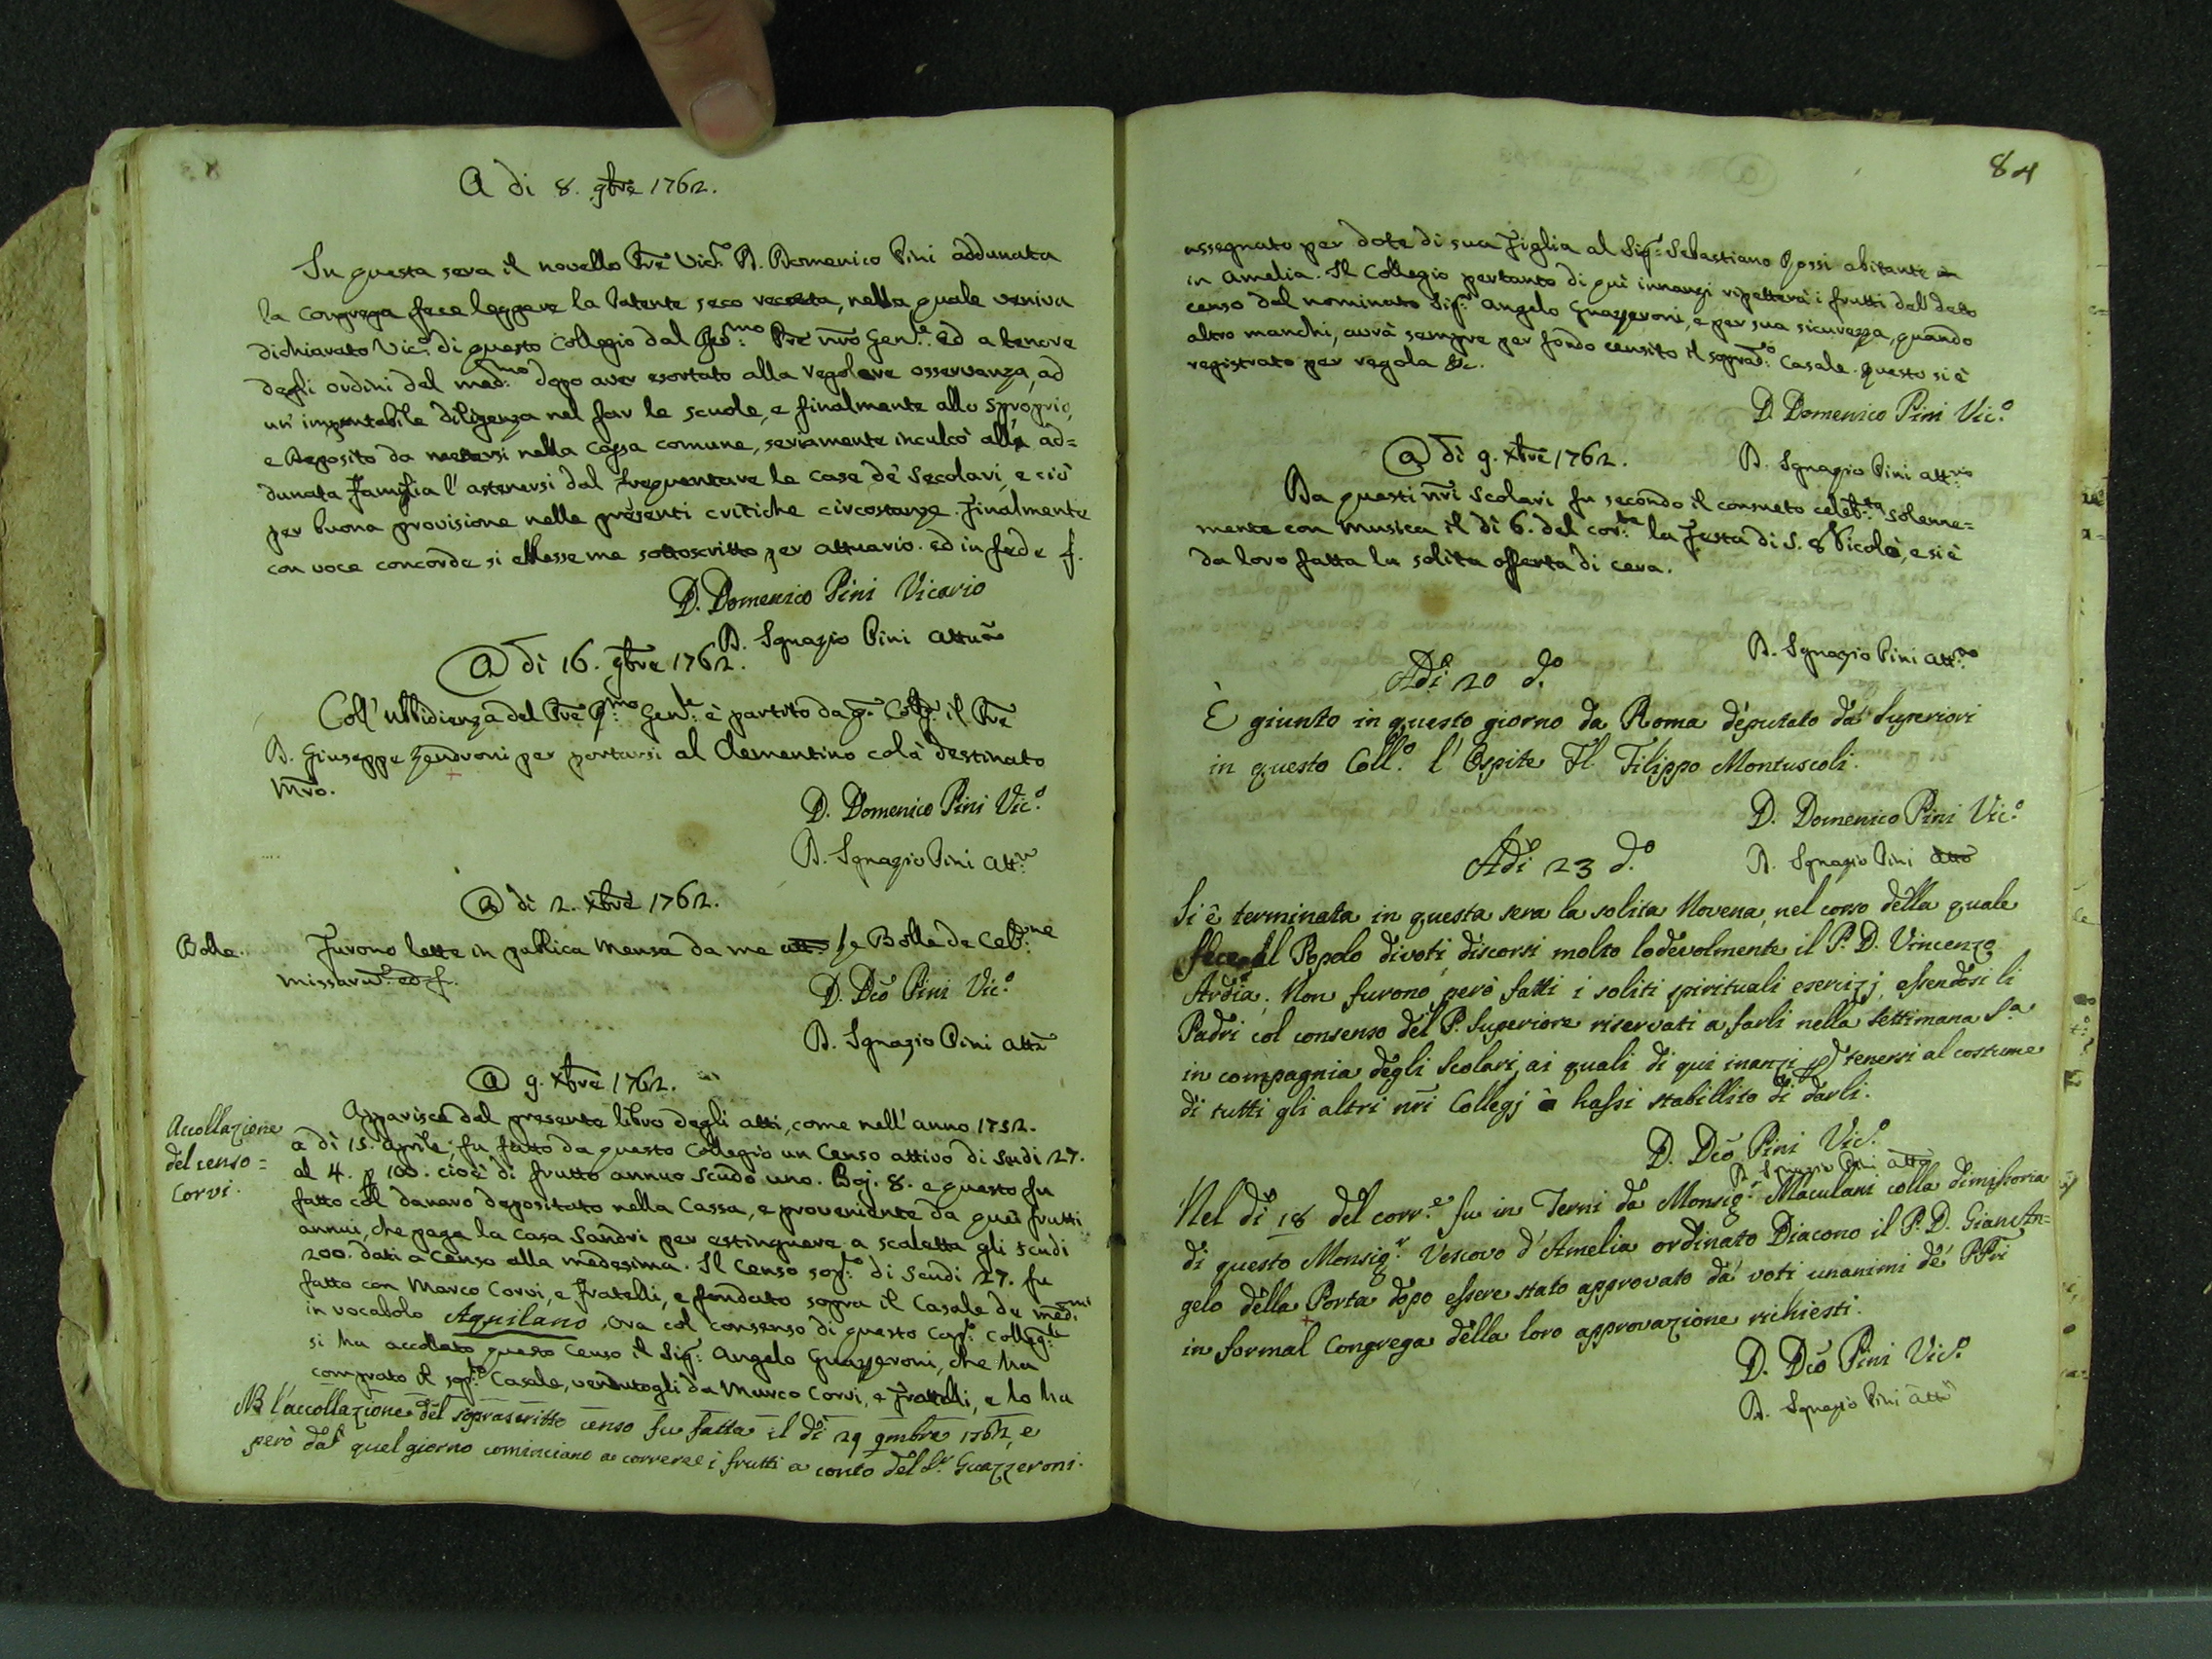 A di 8. 9bre 1762.
In questa sera il novello Pre Vic.o D. Domenico Pini addunata
la Congrega fece leggere la Patente seco recata, nella quale veniva
dichiarato Vic.o di questo Collegio dal Rev.mo Pre nro Gen.e Ed a tenore
degli ordini del med.mo dopo aver esortato alla regolare osservanza, ad
un' impuntabile diligenza nel far le scuole, e finalmente allo sproprio,
e Deposito da mettersi nella Cassa comune, seriamente inculcò alla ad=
dunata Famiglia l' astenersi dal frequentare le Case de' Secolari, e ciò
per buona provisione nelle presenti critiche circostanze. Finalmente
con voce concorde si ellesse me sottoscritto per attuario. ed in fede f.
D. Domenico Pini Vicario
D. Ignazio Pini Attuo
@ dì 16. 9bre 1762.
Coll' ubbidienza del Pre R.mo Gen.le è partito da q.o Coll.o il Pre
D. Giuseppe Zendroni per portarsi al Clementino colà destinato
Mro.
D. Domenico Pini Vic.o
D. Ignazio Pini Att.o
@ di 2. Xbre 1762.
Bolle.
Furono lette in publica Mensa da me att.o le Bolle de Celeb.ne
Missaru. ed f.
D. Dco Pini Vic.o
D. Ignazio Pini Atto
@ 9. Xbre 1762.
Accollazione
del censo =
Corvi.
Apparisce dal presente libro degli atti, come nell' anno 1752.
a dì 15. Aprile; fu fatto da questo Collegio un Censo attivo di scudi 27.
al 4. p 100. cioè di frutto annuo scudo uno. Boj. 8. e questo fu
fatto col danaro depositato nella Cassa, e proveniente da quei frutti
annui, che paga la Casa Sandri per estinguere a scaletta gli scudi
200. dati a Censo alla medesima. Il Censo sop.o di Scudi 27. fu
fatto con Marco Corvi, e Fratelli, e fondato sopra il Casale de med.mi
in vocabolo Aquilano. Ora col consenso di questo Cap.o Colleg.le
si ha accollato questo Censo il Sig.r Angelo Guazzeroni, che ha
comprato il sop.to Casale, vendutogli da Marco Corvi, e Fratelli, e lo ha
NB l'accollazione del soprascritto censo fu fatta il dì 29 9mbre 1762, e
però dal quel giorno cominciano a correre i frutti a conto del S.r Guazzeroni.
84
assegnato per dote di sua Figlia al Sig.r Sebastiano Rossi abitante in
in Amelia. Il Collegio pertanto di quì innanzi ripetterà i frutti dell' detto
censo dal nominato Sig.r Angelo Guazzeroni, e per sua sicurezza, quando
altro manchi, avrà sempre per fondo censito il soprad.o Casale. Questo si è
registrato per regola &c.
D. Domenico Pini Vic.o
D. Ignazio Pini att.rio
@ dì 9. Xbre 1762.
Da questi nri Scolari fu secondo il consueto celeb.ta solenne=
mente con musica il dì 6. del cor.te la Festa di S. Nicolò, e si è
da loro fatta la solita offerta di cera.
D. Ignazio Pini att.rio
Adì 20 d.o
È giunto in questo giorno da Roma deputato da' Superiori
in questo Coll.o l' Ospite Fl. Filippo Montuscoli.
D. Domenico Pini Vic.o
D. Ignazio Pini atto
Adì 23 d.o
Si è terminata in questa sera la solita Novena, nel corso della quale
fece al Popolo divoti discorsi molto lodevolmente il P. D. Vincenzo
Ardia. Non furono però fatti i soliti spirituali esercizj, essendosi li
Padri col consenso del P. Superiore riservati a farli nella settimana S.a
in compagnia degli Scolari, ai quali di qui inanzi p tenersi al costume
di tutti gli altri nri Collegj hassi stabillito di darli.
D. Dco Pini Vic.o
D. Ignazio Pini atto
Nel dì 18 del corr.e fu in Terni da Monsig.r Maculani colla dimissoria
di questo Monsig.r Vescovo d' Amelia ordinato Diacono il P. D. GianAn=
gelo della Porta dopo essere stato approvato da' voti unanimi de' PPri
in formal Congrega della loro approvazione richiesti.
D. Dco Pini Vic.o
D. Ignazio Pini atto